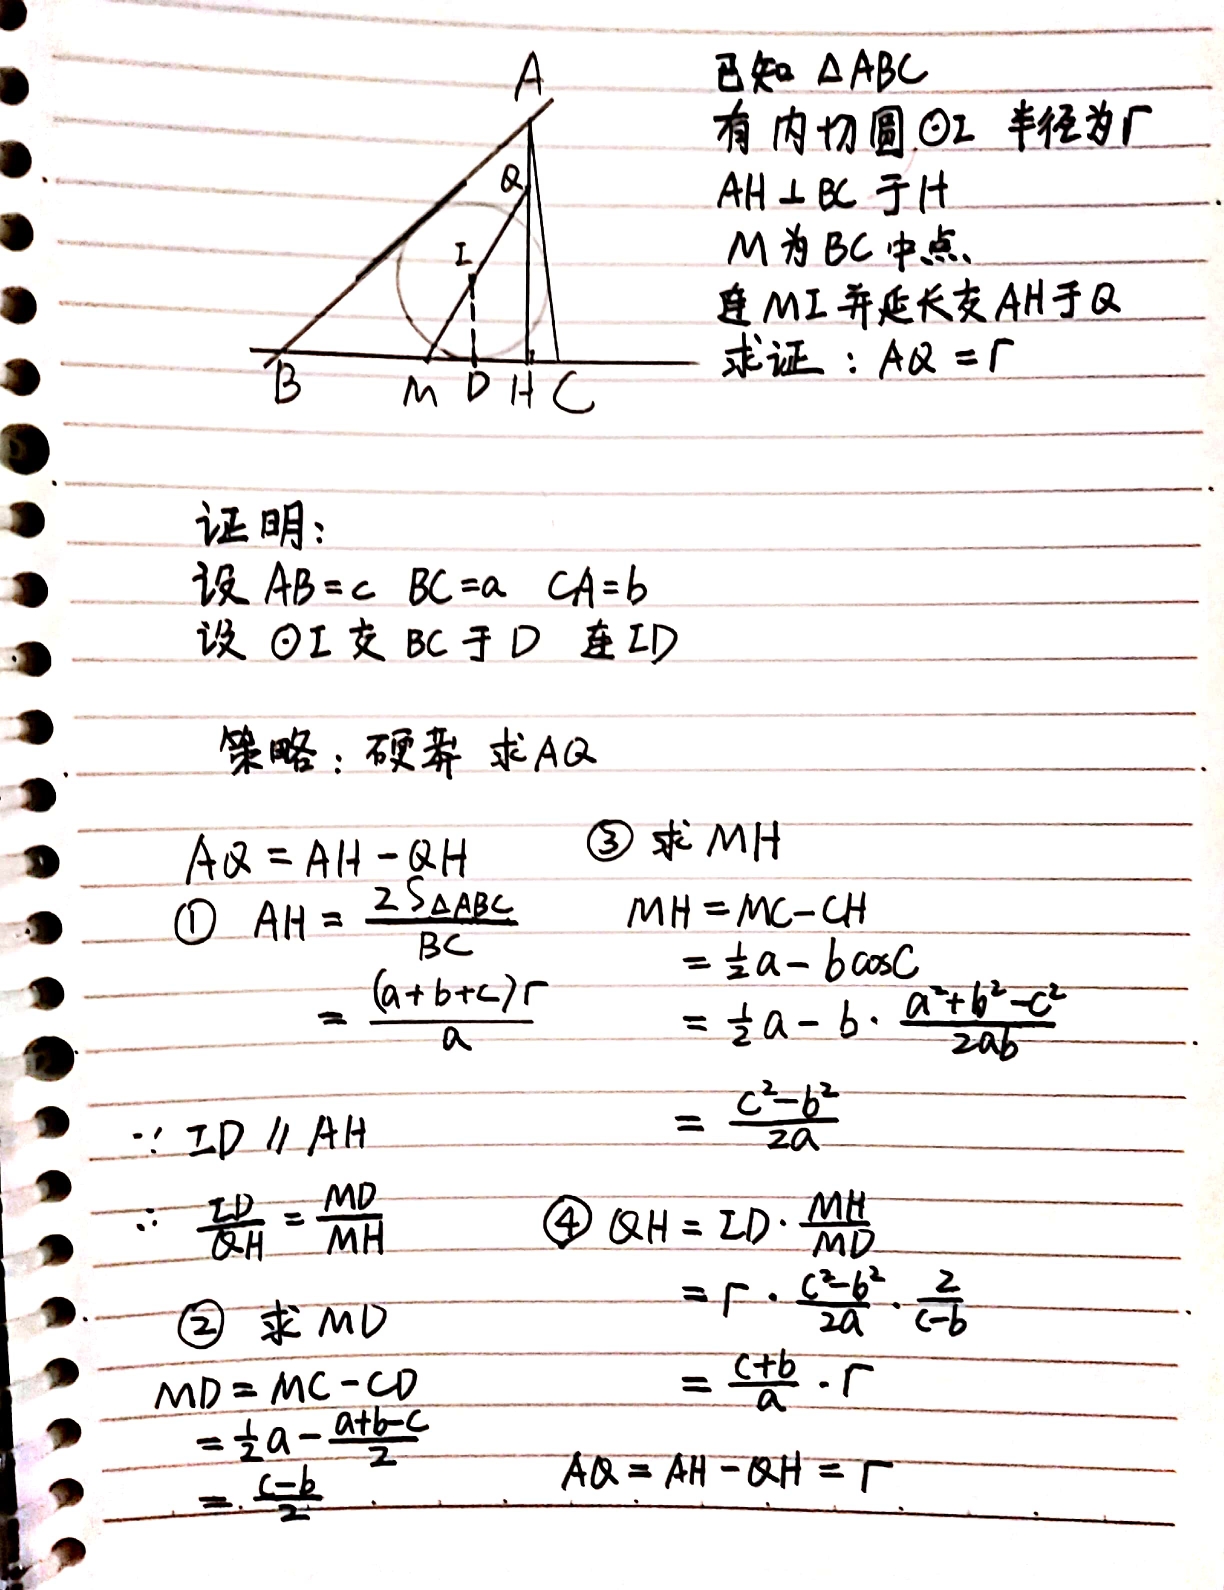 A
Q
I
B
M
D
H
C
已知 △ABC
有内切圆⊙I 半径为r
AH⊥BC 于H
M为BC中点
连MI并延长交AH于Q
求证：AQ=r
证明：
设 AB=c BC=a CA=b
设 ⊙I 交 BC于D 连ID
策略：硬莽 求AQ
AQ=AH-QH
① AH=2S△ABC/BC
=(a+b+c)r/a
∵ ID∥AH
∴ ID/QH=MD/MH
② 求MD
MD=MC-CD
=½a-(a+b-c)/2
=(c-b)/2
③ 求MH
MH=MC-CH
=½a-bcosC
=½a-b·(a²+b²-c²)/2ab
=(c²-b²)/2a
④ QH=ID·MH/MD
=r·(c²-b²)/2a·2/(c-b)
=(c+b)/a·r
AQ=AH-QH=r